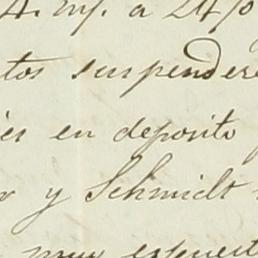 4. my. a 24%
tos suspendere
ies en deposito
y Schmidt
muy expuest